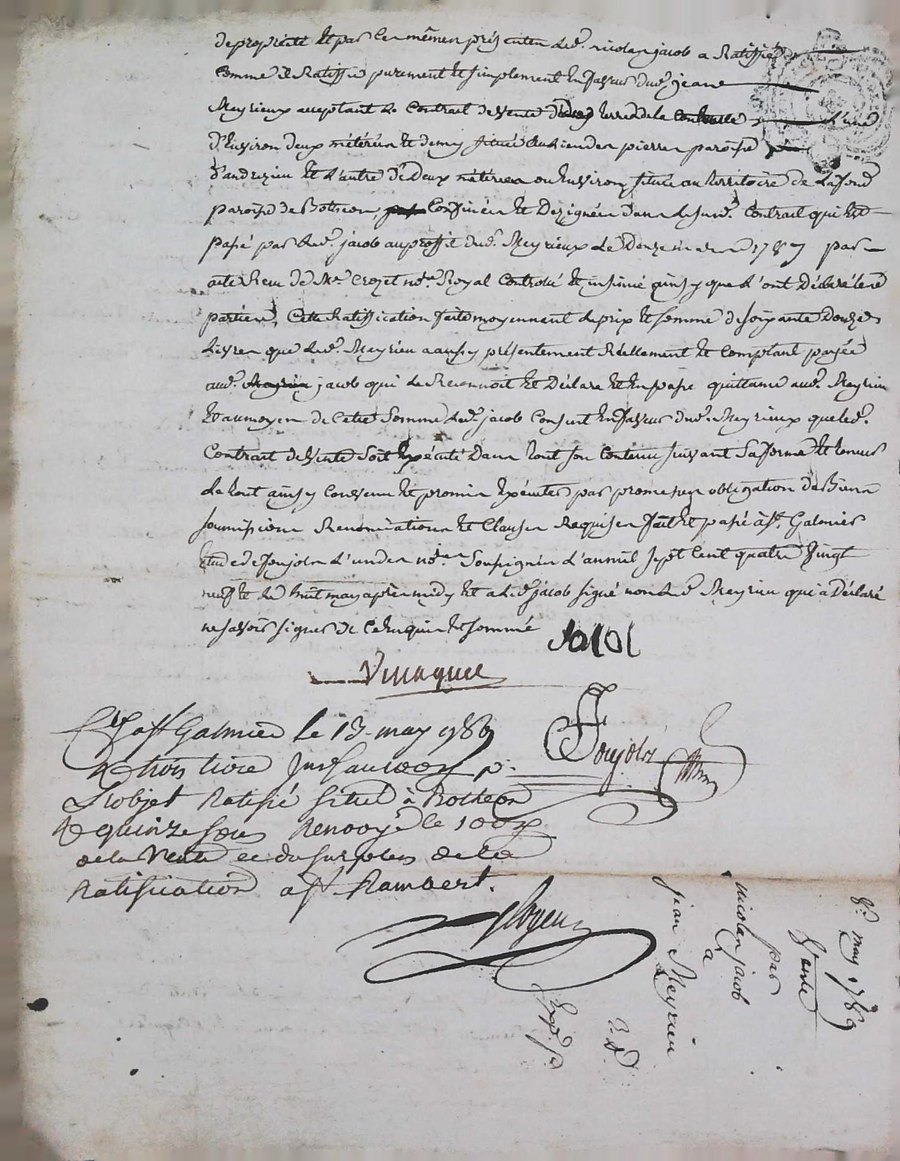 de propriété et par les mêmes présentes led. nicolas jacob a Ratiffié
Comme il Ratiffie purement et simplement En faveur dud. jean
Meyrieux acceptant Le Contrat de vente des terres de la L'une
d'Environ deux méterées et demy située aux paroisse
d'andrezieu et L'autre de Deux méterées ou Environ située au territoire de Lafond
paroisse de Botheon, Confinées et Dezignées dans le susd. Contrat qui Est
passé par led. jacob au proffit dud. Meyrieux Le Douze 1787 par
acte Reçu de Me. Crozet nore. Royal Controlé et insinué ainsy que L'ont Déclaré lesd.
parties, Cette Ratiffication faite moyennant le prix et somme de soixante Douze
Livres que led. Meyrieu a aussy présentement Réellement et Comptant payée
aud. jacob qui Le Reconnoit et Déclare et En passe quittance aud. Meyrieu
Et au moyen de Cette Somme led. jacob Consent En faveur dud. Meyrieux que led.
Contrat de vente soit Exécuté Dans tout son Contenu suivant Sa forme et teneur
Le tout ainsy Convenu et promis Exécuter par promesses obligation de Biens
soumissions Renonciations et Clauses Requises fait et passé à St. Galmier
Etude de Ponjolas L'un des nores. Soussignés L'an mil sept Cent quatre vingt
neuf et Le huit may après midy et a led. jacob signé non led. Meyrieu qui a Déclaré
ne savoir signer de Ce Enquis et sommé
Jacob
a St Galmier Le 13 may 1789
Rx trois livre
L'objet Ratifié situé à Botheon
Rx quinze sous Renvoyé le 100e
de la Vente et du surplus de la
Ratification a St Rambert.
8e. may 1789
Vente
par
nicolas jacob
a
jean Meyrieu
Exp. p.